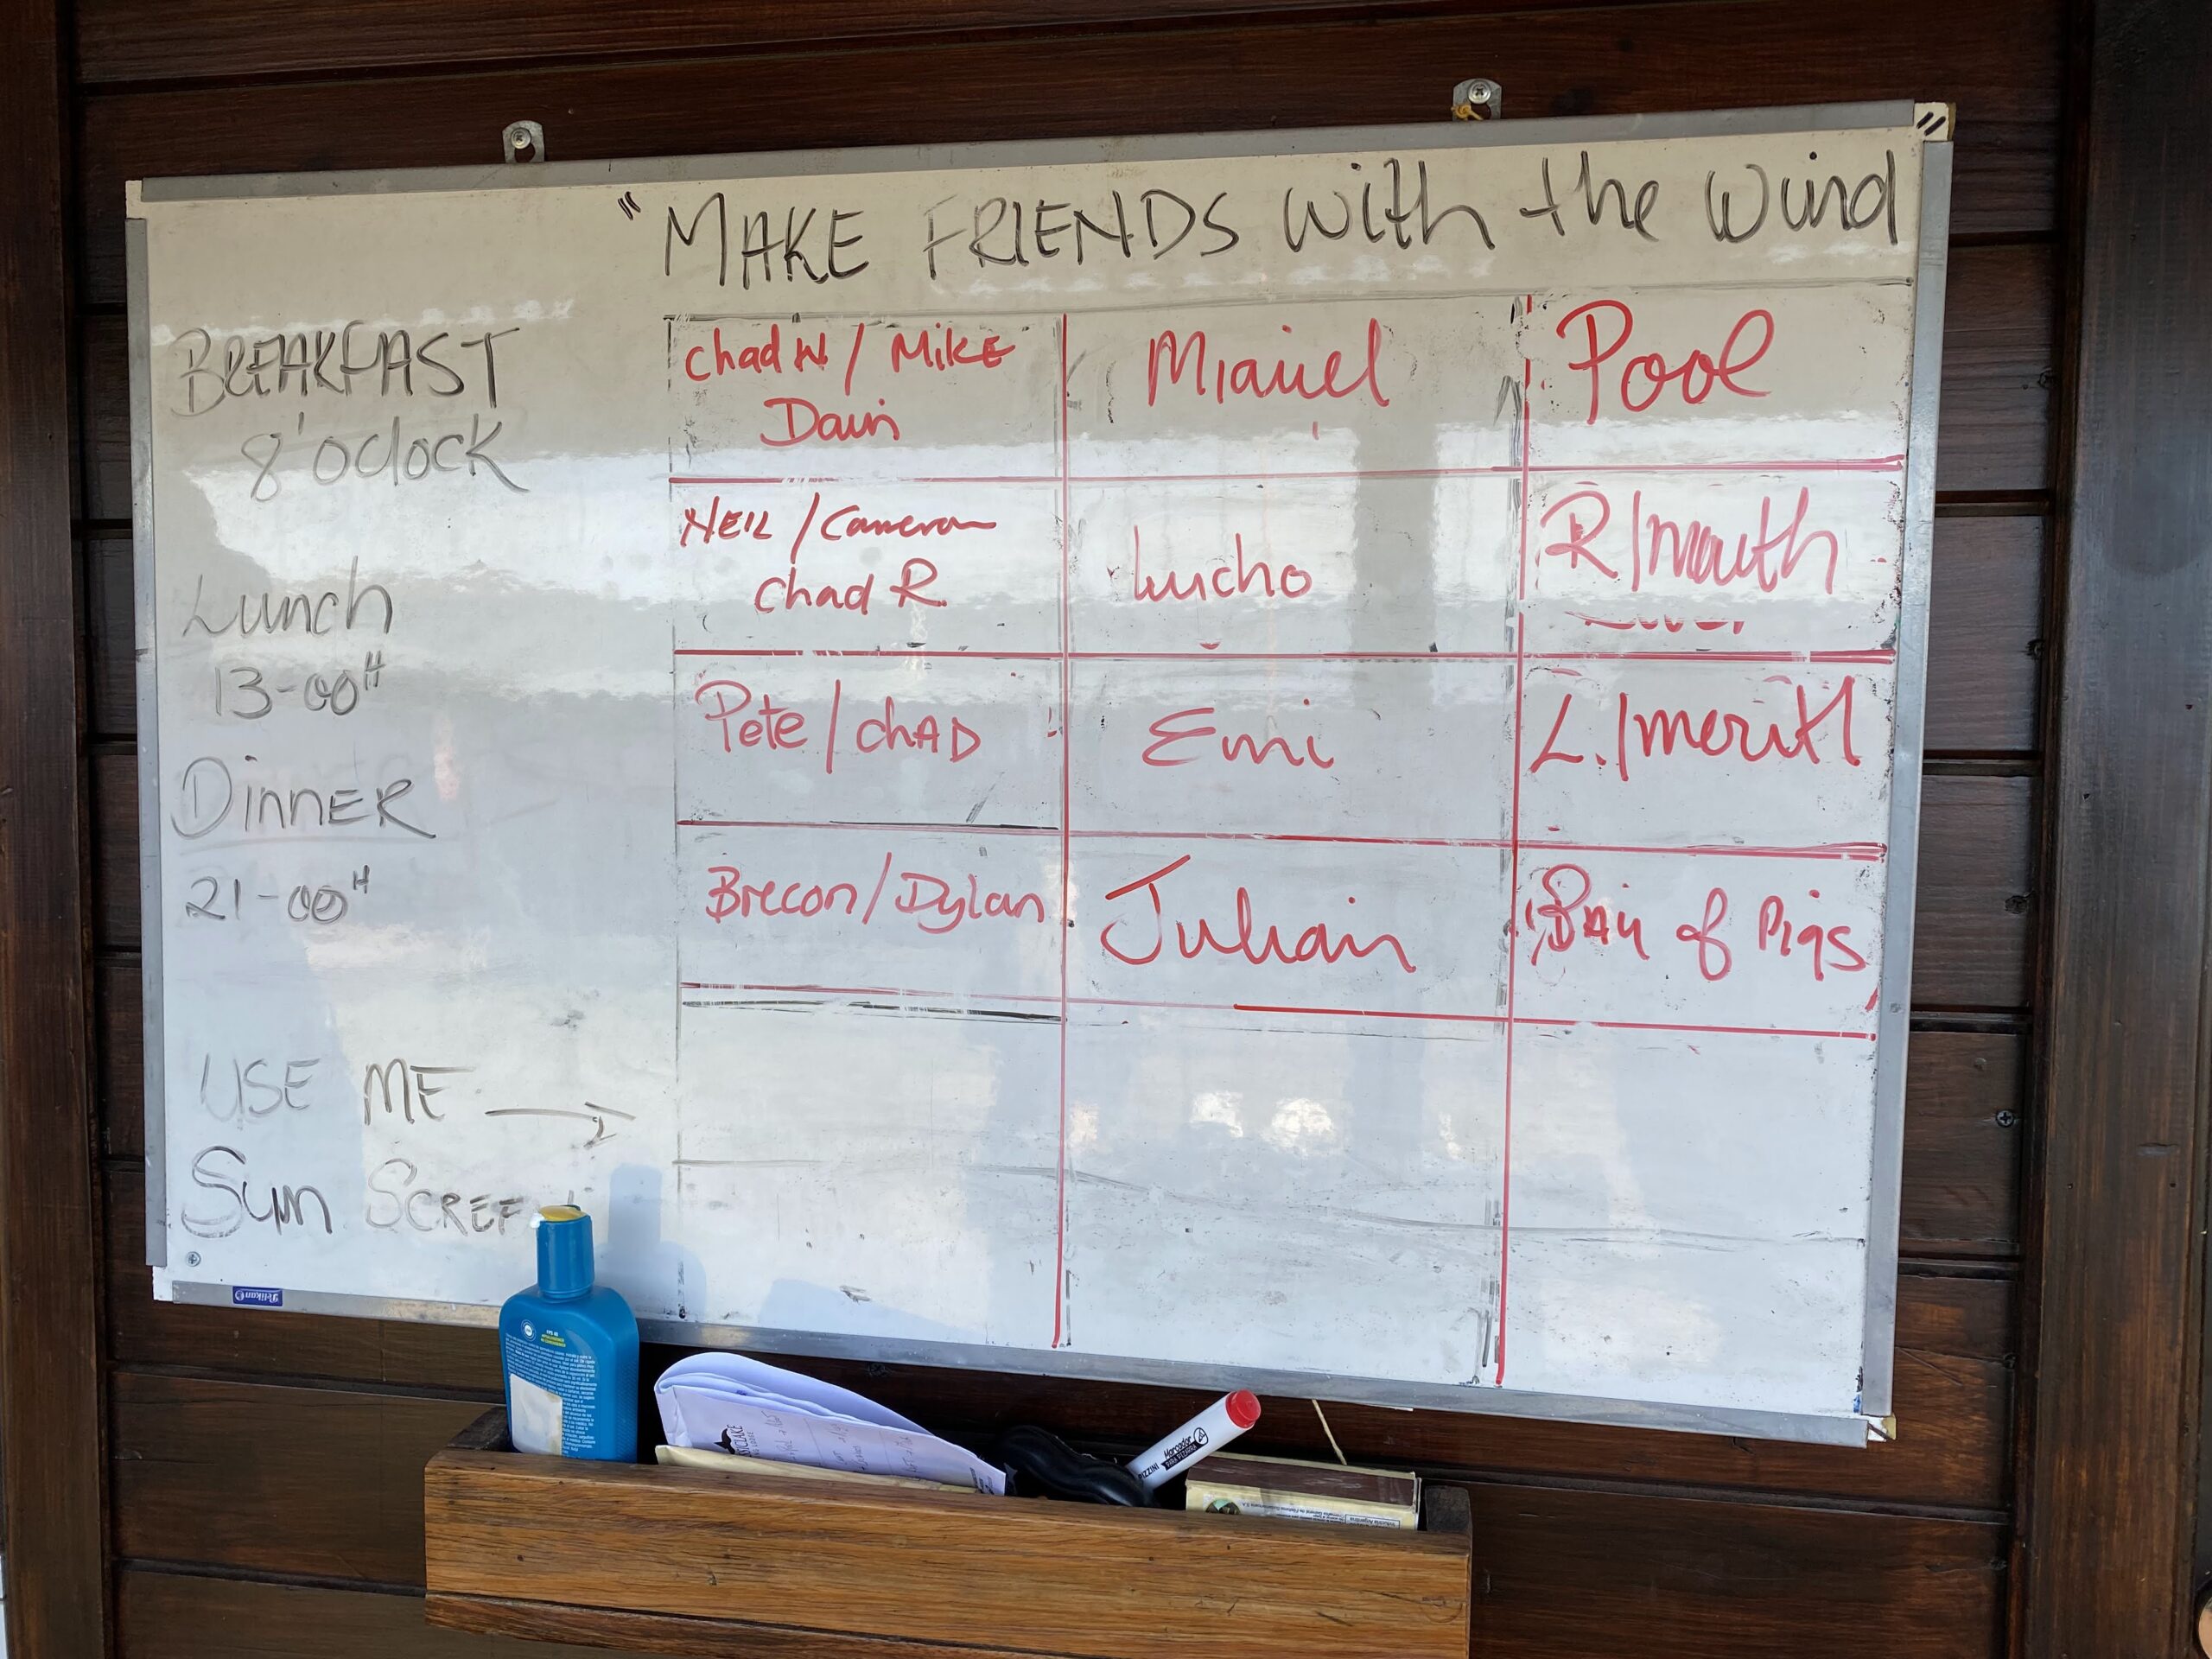 "MAKE FRIENDS with the Wind"
BREAKFAST
8'oclock
Lunch
13-00H
DINNER
21-00H
USE ME →
Sun SCREE
Chad W / MIKE
Neil / Cameron
Chad R.
Pete / CHAD
Brecon / Dylan
Lucho
Emi
Julian
Pool
R/mouth
L./
BAy of Pigs
Pelikan
Marcador
PIZZINI
Industria Argentina